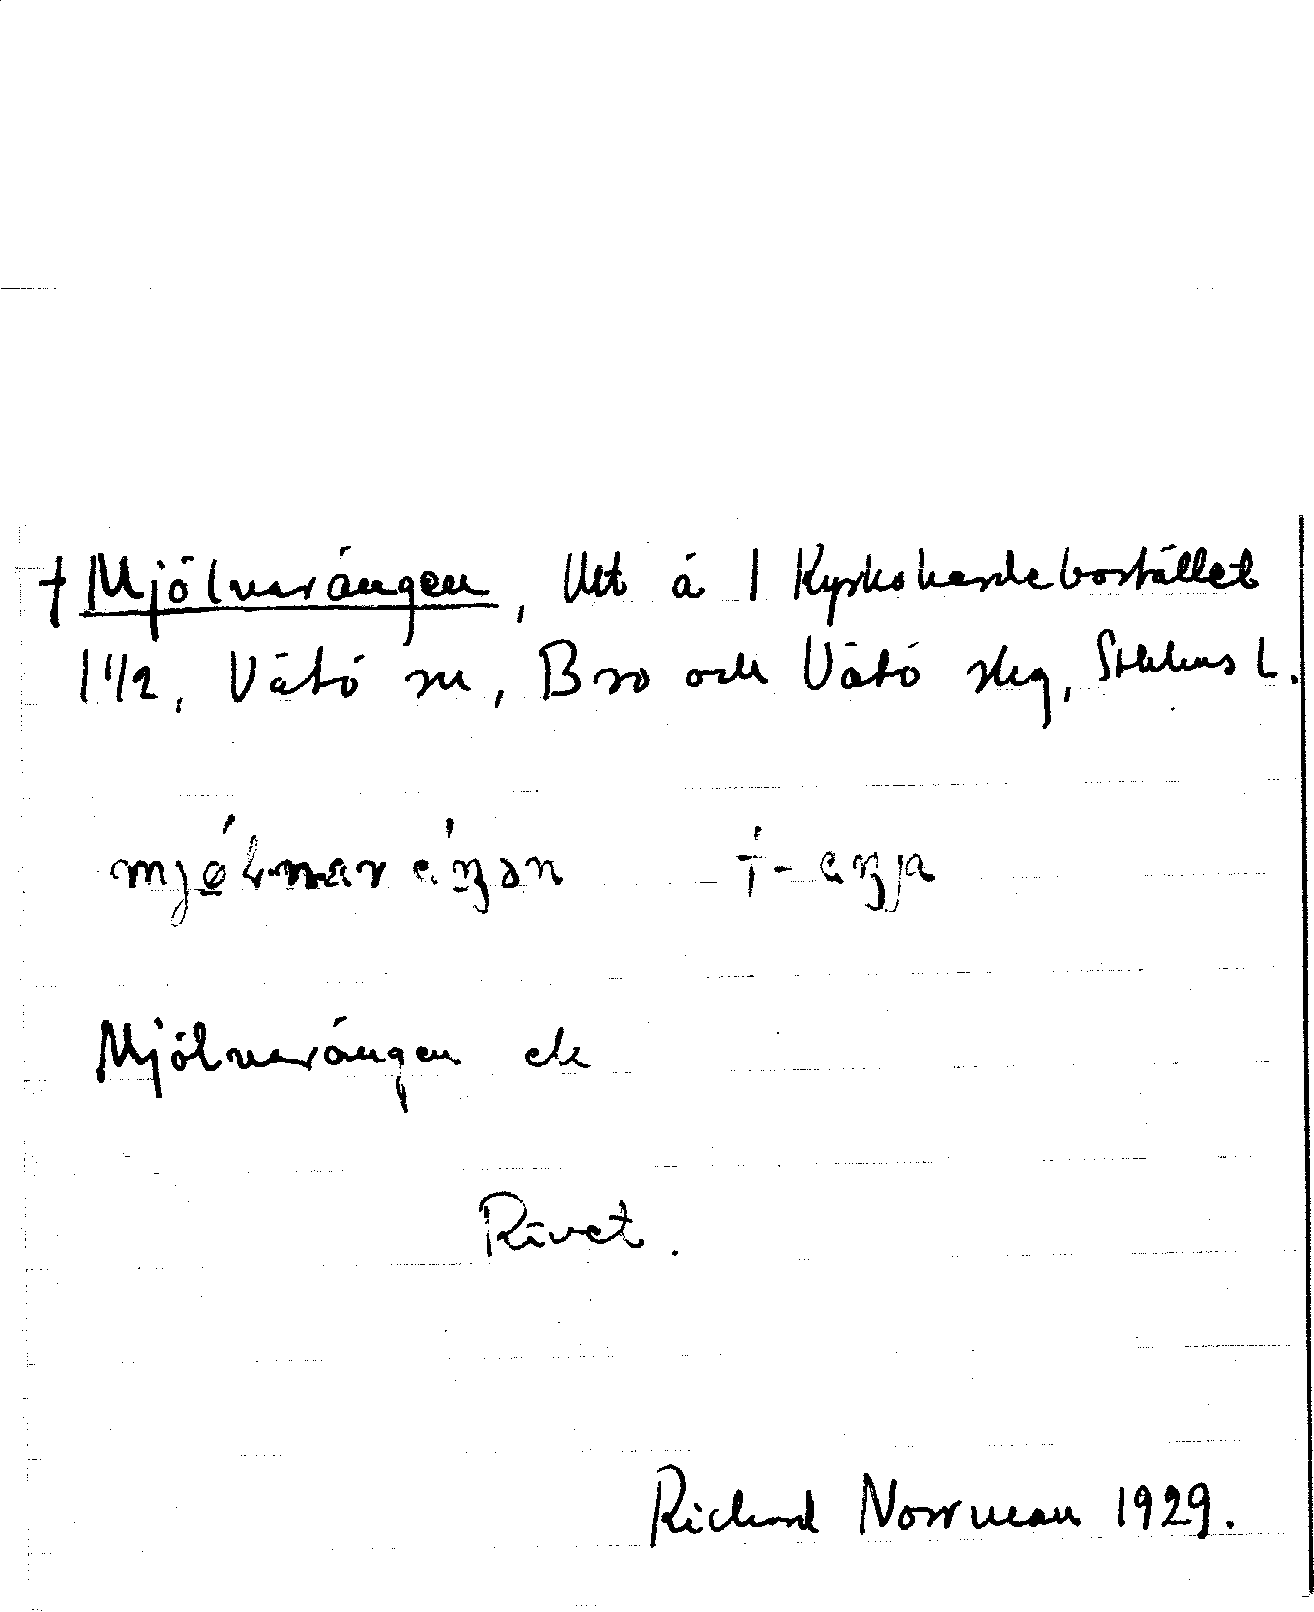 † Mjölnarängen, Utt å 1 Kyrkoherdebostället
1 1/2, Vätö sn, Bro och Vätö skg, Sthlms l.
Mjölnarängen ek
Rivet.
Richard Norrman 1929.